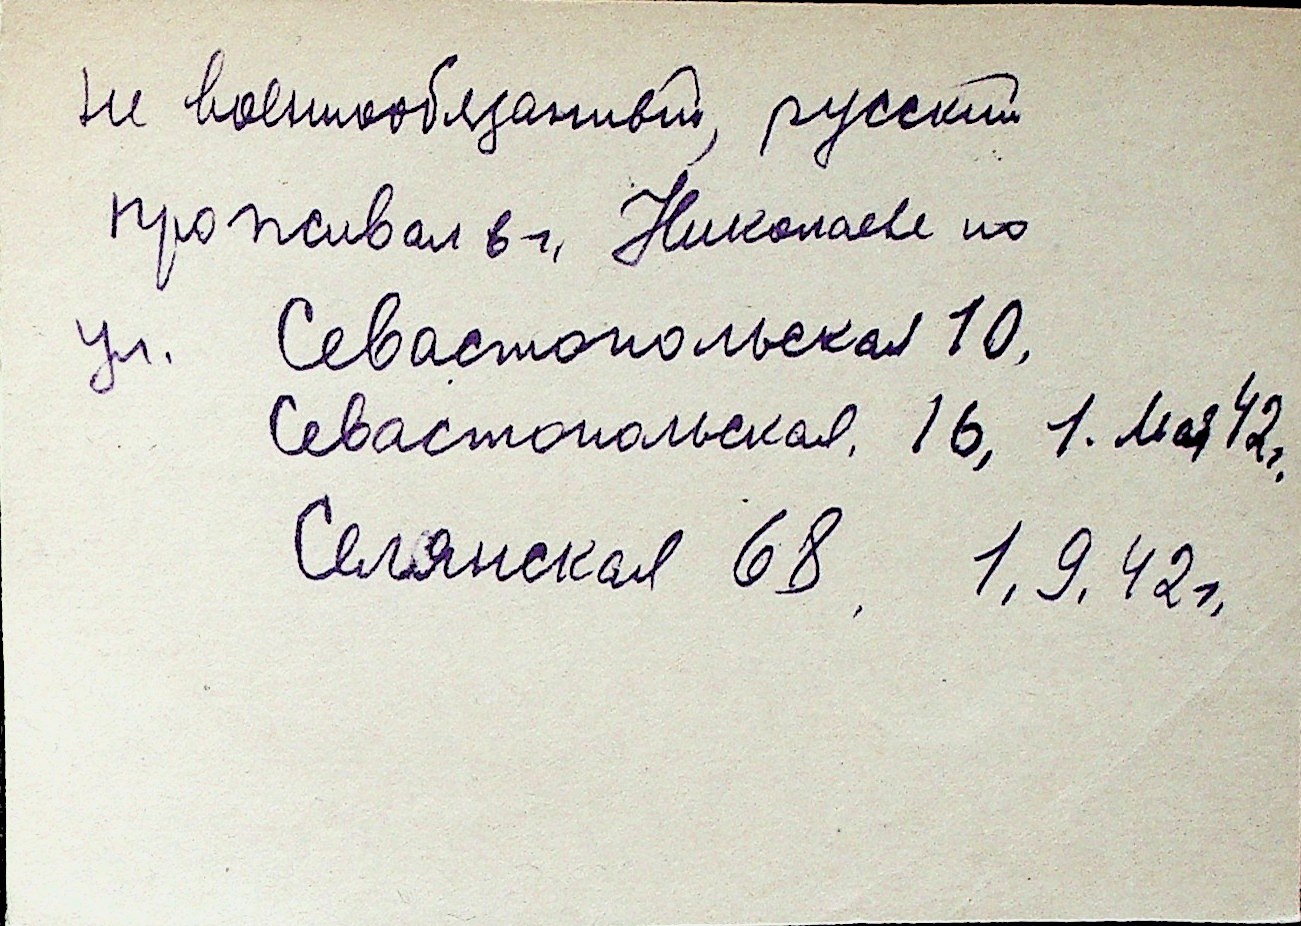 не военнообязанный, русский
проживал в г. Николаеве по
ул. Севастопольская 10,
Севастопольская, 16, 1. Мая 42г.
Селянская 68, 1.9.42г.